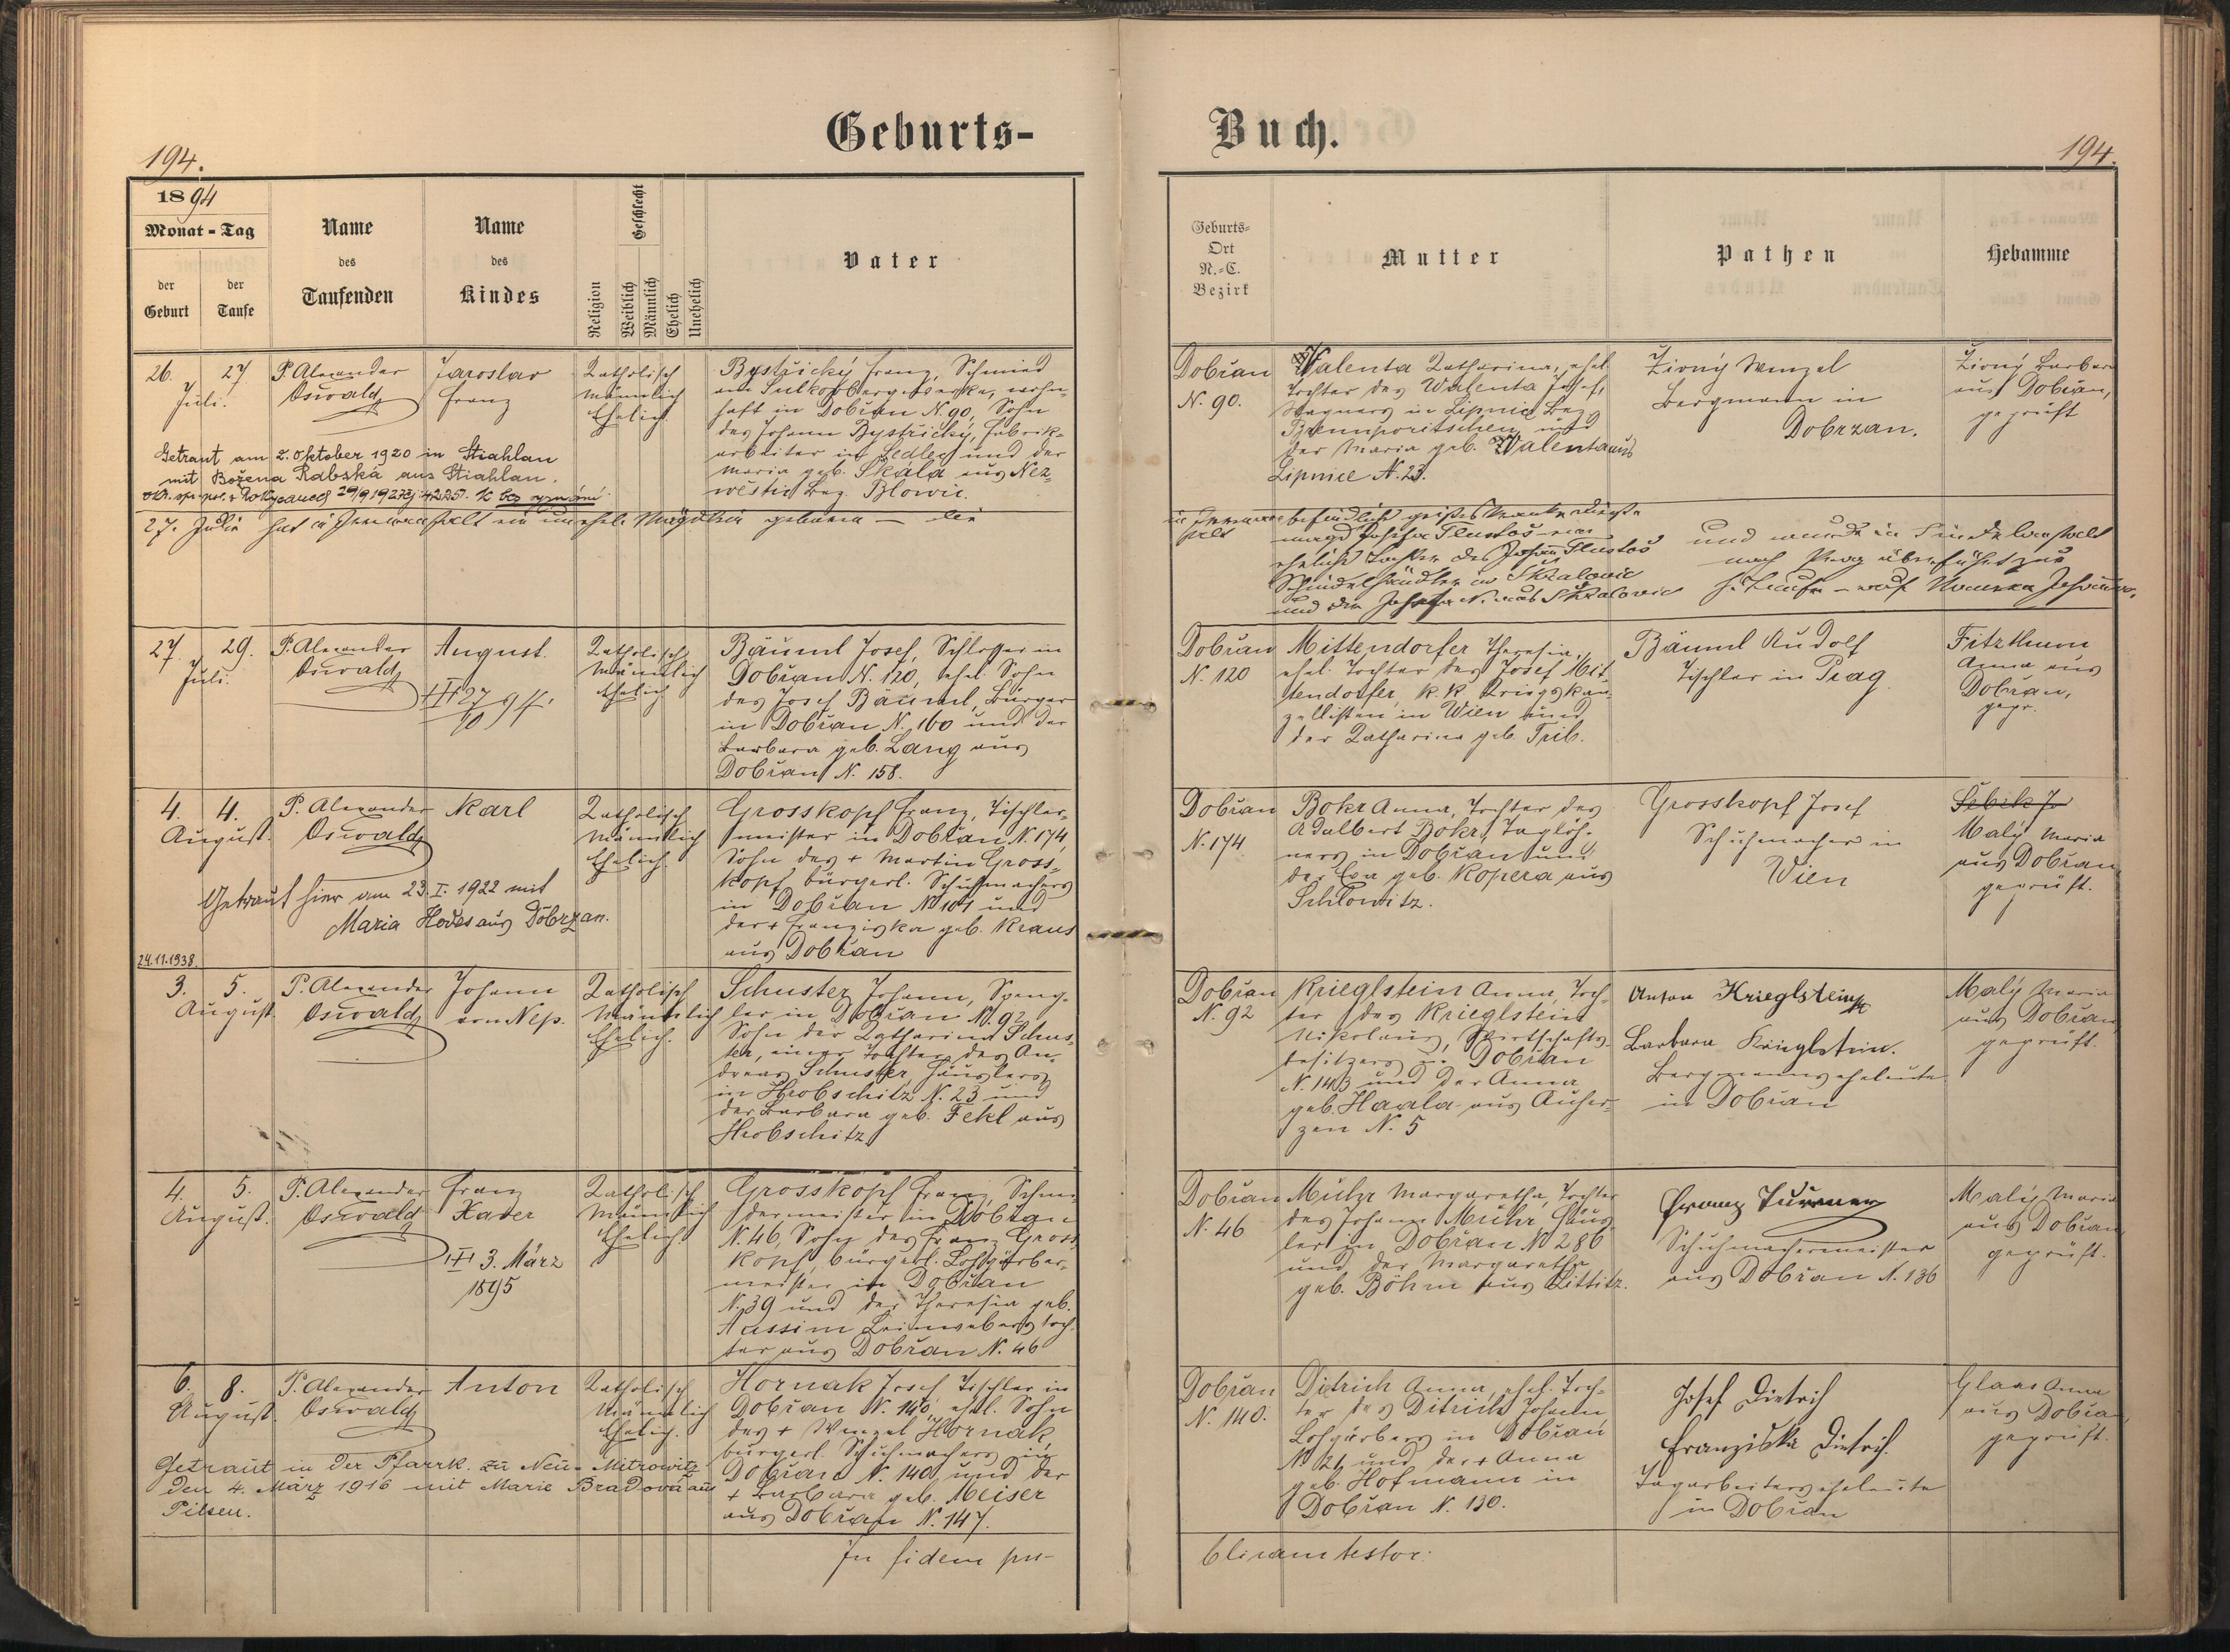 Geburts-
Buch.
194.
194.
1894
Monat - Tag
der
Geburt
der
Taufe
Name
des
Taufenden
Name
des
Kindes
Religion
Geschlecht
Weiblich
Männlich
Ehelich
Unehelich
Vater
Geburts-
Ort
N.-C.
Bezirk
Mutter
Pathen
Hebamme
26. 27
Juli.
P. Alexander
Oswald
Jaroslav
Franz
Katholisch
Männlich
Ehelich.
Bystřický Franz, Schmied
wohn-
haft in Dobřan N. 90, Sohn
des Johann Bystřický, Fabrik-
arbeiter in Sedlec und der
Maria geb. Skála aus Nez-
wěstic Bez. Blowic.
Getraut am 2. Oktober 1920 in Stiahlau
mit Božena Rabská aus Stiahlau.
29/9 1927 bez vyznání
Dobřan
N. 90.
Walenta Katharina, ehel.
Tochter des Walenta Josef,
Wagners in Lipnic Bez.
und
der Maria geb. Walenta aus
Lipnice N. 23.
Živný Wenzel
Bergmann in
Dobrzan.
Živný Barbara
aus Dobřan,
geprüft
27. Juli hat in ein unehel. Mädchen geboren — die
befindlich
Josefa Tlustoš
eheliche Tochter des Johann Tlustoš
Schindelhändler in
und der Josefa
und wurde in Findelanstalt
nach Prag überführt zur
H. Taufe — auf
27. 29.
Juli.
P. Alexander
Oswald
August.
27/10 94.
Katholisch
Männlich
Ehelich
Bäuml Josef, Schlosser in
Dobřan N. 120, ehel. Sohn
des Josef Bäuml, Bürger
in Dobřan N. 160 und der
Barbara geb. Lang aus
Dobřan N. 158.
Dobřan
N. 120
Mittendorfer Theresia,
ehel. Tochter des Josef Mit-
tendorfer, k. k. Kriegskan-
zellisten in Wien und
der Katharina geb. Trib.
Bäuml Rudolf
Tischler in Prag
Fitzthum
Anna aus
Dobřan,
gepr.
4. 4.
August.
P. Alexander
Oswald
Karl
Katholisch
Männlich
Ehelich.
Grosskopf Franz, Tischler-
meister in Dobřan N. 174,
Sohn des + Martin Gross-
kopf bürgerl. Schuhmachers
in Dobřan N 101 und
der + Franziska geb. Kraus
aus Dobřan
Getraut hier am 23. I. 1922 mit
Maria Hodes aus Dobrzan.
24.11.1938.
Dobřan
N. 174
Bokr Anna, Tochter des
Adalbert Bokr, Taglöh-
ners in Dobřan und
der Eva geb. Kopera aus
Schlowitz.
Grosskopf Josef
Schuhmacher in
Wien
Malý Maria
aus Dobřan
geprüft.
3. 5.
August
P. Alexander
Oswald
Johann
von Nep.
Katholisch
Männlich
Ehelich.
Schuster Johann, Speng-
ler in Dobřan N. 92
Sohn der Katharina Schus-
ter, einer Tochter des An-
dreas Schuster, Häuslers
in Hrobschitz N. 23 und
der Barbara geb. Fekl aus
Hrobschitz
Dobřan
N. 92
Krieglstein Anna, Toch-
ter des Krieglstein
Nikolaus, Wirtschafts-
besitzers in Dobřan
N. 143 und der Anna
geb. Haala aus Auher-
zen N. 5
Anton Krieglstein
Barbara Krieglstein.
Bergmannseheleute
in Dobřan
Malý Maria
aus Dobřan,
geprüft.
4. 5.
August.
P. Alexander
Oswald
Franz
Xaver
3. März
1895
Katholisch
Männlich
Ehelich.
Grosskopf Franz, Schnei-
dermeister in Dobřan
N. 46, Sohn des Franz Gross-
kopf, bürgerl. Lohgärber-
meister in Dobřan
N. 39 und der Theresia geb.
Leinweberstoch-
ter aus Dobřan N. 46
Dobřan
N. 46
Mühr Margaretha, Tochter
des Johann Mühr, Häus-
ler in Dobřan N 286
und der Margaretha
geb. Böhm aus Littitz.
Franz Turner
Schuhmachermeister
aus Dobřan N. 136
Malý Maria
aus Dobřan
geprüft.
6. 8.
August.
P. Alexander
Oswald
Anton
Katholisch
Männlich
Ehelich.
Hornak Josef, Tischler in
Dobřan N. 140, ehel. Sohn
des + Wenzel Hornak,
bürgerl. Schuhmachers in
Dobřan N. 140, und der
+ Barbara geb. Meiser
aus Dobřan N. 147.
Getraut in der Pfarrk. zu Neu-Mitrowitz
den 4. März 1916 mit Marie Bradová aus
Pilsen.
Dobřan
N. 140.
Ditrich Anna, ehel. Toch-
ter des Ditrich Johann,
Lohgärbers in Dobřan
N 21 und der + Anna
geb. Hofmann in
Dobřan N. 130.
Josef Dietrich
Franziska Dietrich.
Tagarbeiterseheleute
in Dobřan
Glaas Anna
aus Dobřan,
geprüft.
In fidem pu-
blicam testor: